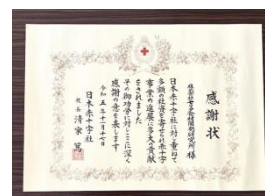 感謝状
様
日本赤十字社に対し重ねて
多額の社資を寄せられ赤十字
事業の進展に多大の貢献
をされました
その御功労に対しここに深く
感謝の意を表します
令和五年十一月十一日
日本赤十字社
社長 清家 篤